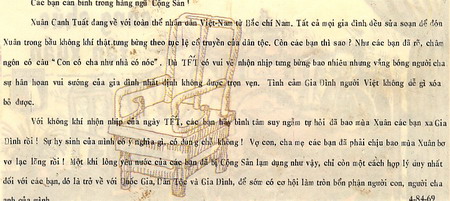 Các bạn cán binh trong hàng ngũ Cộng Sản !
Xuân Canh Tuất đang về với toàn thể nhân dân Việt-Nam từ Bắc chí Nam. Tất cả mọi gia đình đều sửa soạn để đón
Xuân trong bầu không khí thật tưng bừng theo tục lệ cổ truyền của dân tộc. Còn các bạn thì sao ? Như các bạn đã rõ, châm
ngôn có câu "Con có cha như nhà có nóc". Dù TẾT có vui vẻ nhộn nhịp tưng bừng bao nhiêu nhưng vắng bóng người cha
sự hân hoan vui sướng của gia đình nhất định không được trọn vẹn. Tình cảm Gia Đình người Việt không dễ gì xóa
bỏ được.
Với không khí nhộn nhịp của ngày TẾT, các bạn hãy bình tâm suy ngẫm tự hỏi đã bao mùa Xuân các bạn xa Gia
Đình rồi ! Sự hy sinh của mình có ý nghĩa gì, có đúng chỗ không ? Vợ con, cha mẹ các bạn đã phải chịu bao mùa Xuân bơ
vơ lạc lõng rồi ! Một khi lòng yêu nước của các bạn đã bị Cộng Sản lạm dụng như vậy, chỉ còn một cách hợp lý duy nhất
đối với các bạn, đó là trở về với Quốc Gia, Dân Tộc và Gia Đình, để sớm có cơ hội làm tròn bổn phận người con, người cha
anh của mình. 4-84-69